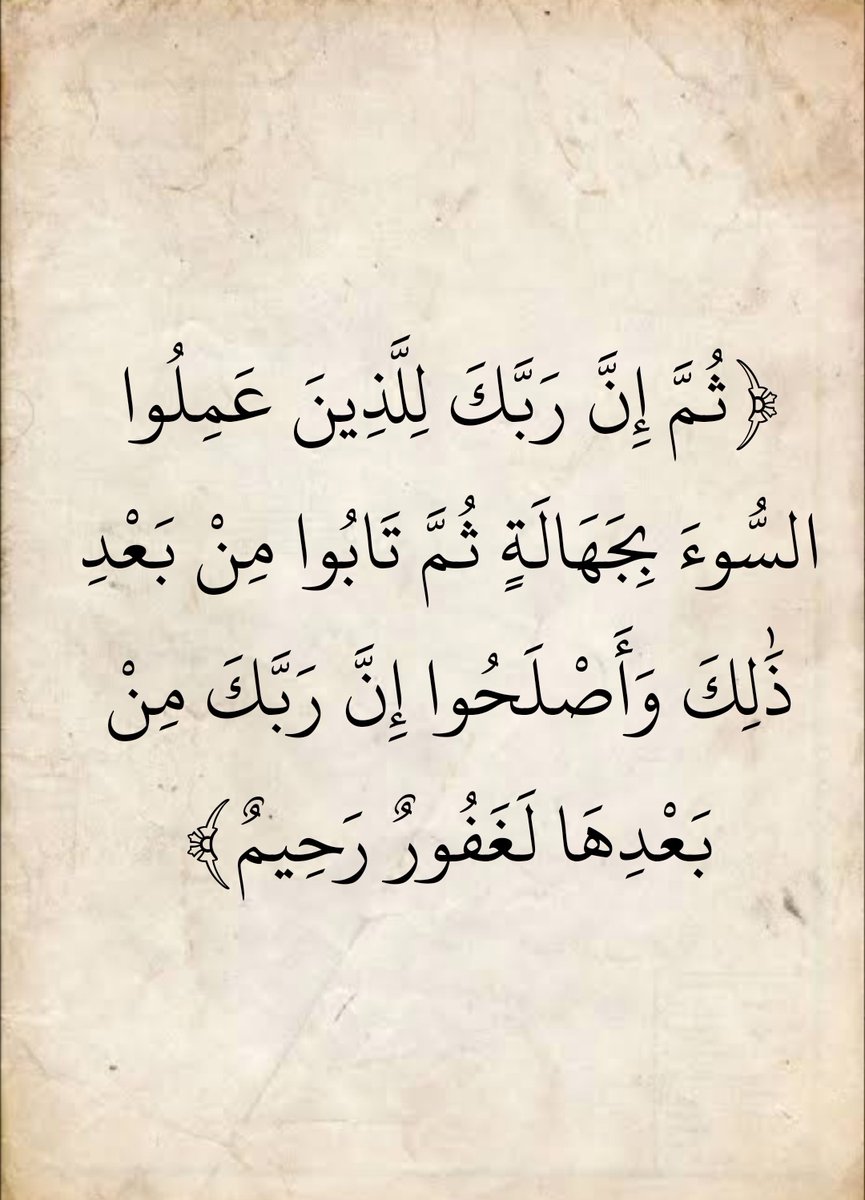 ﴿ثُمَّ إِنَّ رَبَّكَ لِلَّذِينَ عَمِلُوا
السُّوءَ بِجَهَالَةٍ ثُمَّ تَابُوا مِنْ بَعْدِ
ذَٰلِكَ وَأَصْلَحُوا إِنَّ رَبَّكَ مِنْ
بَعْدِهَا لَغَفُورٌ رَحِيمٌ﴾